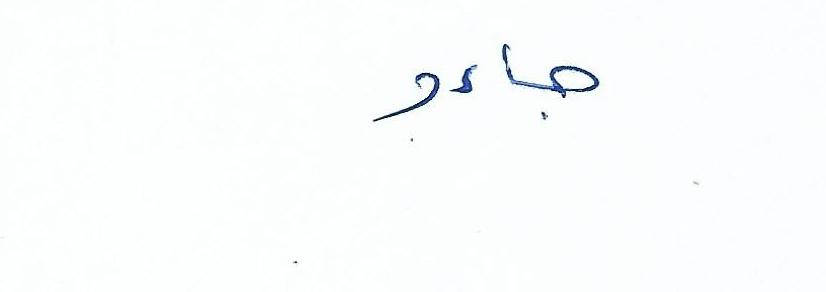 جادو